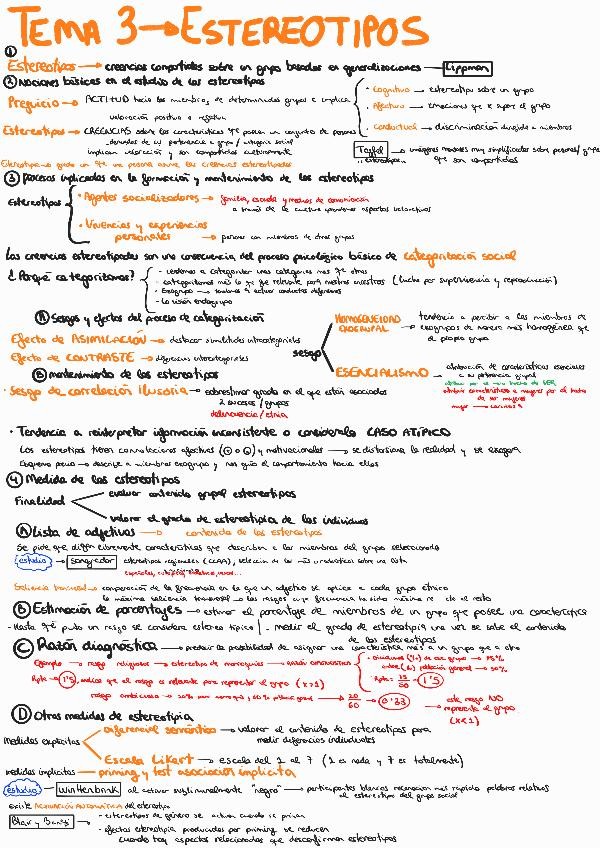 TEMA 3→ESTEREOTIPOS
①
Estereotipos → creencias compartidas sobre un grupo basadas en generalizaciones → Lippman
② Nociones básicas en el estudio de los estereotipos
Prejuicio → ACTITUD hacia los miembros de determinados grupos e implica
valoración positiva o negativa
· Cognitivo → estereotipo sobre un grupo
· Afectivo → emociones sobre el grupo
· Conductual → discriminación dirigida a miembros
Estereotipos → CREENCIAS sobre las características que poseen un conjunto de personas
derivadas de su pertenencia a grupo / categoría social
implican valoración y son compartidas culturalmente
Tajfel → imágenes mentales muy simplificadas sobre personas/grupos
que son compartidas
Estereotipia → grado en que una persona las creencias estereotipadas
③ Procesos implicados en la formación y mantenimiento de los estereotipos
Estereotipos
· Agentes socializadores → familia, escuela y medios de comunicación
a través de la cultura aspectos valorativos
· Vivencias y experiencias
personales → personas con miembros de otros grupos
Las creencias estereotipadas son una consecuencia del proceso psicológico básico de categorización social
¿Porqué categorizamos?
- tendemos a categorizar unas categorías más que otras
- categorizamos más lo que fue relevante para nuestros ancestros (lucha por supervivencia y reproducción)
- Exogrupo → tendemos a activar conductas defensivas
- La visión endogrupo
Ⓐ Sesgos y efectos del proceso de categorización
Efecto de ASIMILACIÓN → destacar similitudes intracategoriales
Efecto de CONTRASTE → diferencias intercategoriales
sesgo
HOMOGENEIDAD
EXOGRUPAL → tendencia a percibir a los miembros de
exogrupos de manera más homogénea que
al propio grupo
ESENCIALISMO → atribución de características esenciales
a su pertenencia grupal
por el mero hecho de SER
atribuir características a mujeres por el hecho
de ser mujeres
mujer → cariñosa
Ⓑ mantenimiento de los estereotipos
· Sesgo de correlación ilusoria → sobrestimar grado en el que están asociados
2 sucesos / grupos
delincuencia / etnia
· Tendencia a reinterpretar información inconsistente o considerarla CASO ATÍPICO
Los estereotipos tienen connotaciones afectivas (+ o -) y motivacionales → se distorsiona la realidad y se exagera
Esquema previo → describe a miembros exogrupo y nos guía el comportamiento hacia ellos
④ Medida de los estereotipos
Finalidad
evaluar contenido grupal estereotipos
valorar el grado de estereotipia de los individuos
Ⓐ Lista de adjetivos → contenido de los estereotipos
Se pide que digan libremente características que describen a los miembros del grupo seleccionado
estudio → Sangrador estereotipos regionales (CCAA), selección de los más utilizados sobre una lista
Saliencia transversal → comparación de la frecuencia en la que un adjetivo se aplica a cada grupo étnico
la máxima saliencia transversal → los rasgos cuya frecuencia ha sido máxima en ese
Ⓑ Estimación de porcentajes → estimar el porcentaje de miembros de un grupo que posee una característica
- Hasta qué punto un rasgo se considera estereotípico | - medir el grado de estereotipia una vez se sabe el contenido
de los estereotipos
Ⓒ Razón diagnóstica → predecir la probabilidad de asignar una característica más a un grupo que a otro
Ejemplo → rasgo religioso → estereotipo de marroquíes → razón diagnóstica
individuos (%) de ese grupo → 75%
entre (%) población general → 50%
Rpta → 1'5 indica que el rasgo es relevante para representar el grupo (x>1)
Rpta: → 1'5
rasgo ambicioso → 20% son, 60% población general → 20/60 → 0'33 este rasgo NO
representa el grupo
(x<1)
Ⓓ Otras medidas de estereotipia
Medidas explícitas
Diferencial semántico → valorar el contenido de estereotipos para
medir diferencias individuales
Escala Likert → escala del 1 al 7 (1 es nada y 7 es totalmente)
medidas implícitas → priming y test asociación implícita
estudio → Wittenbrink al activar subliminalmente "negro" → participantes blancos reconocían más rápido palabras relativas
al estereotipo del grupo social
existe ACTIVACIÓN AUTOMÁTICA del estereotipo
Blair y Banaji
- estereotipos de género se activan cuando se priman
- efectos estereotipia producidos por priming se reducen
cuando hay aspectos relacionados que desconfirman estereotipos